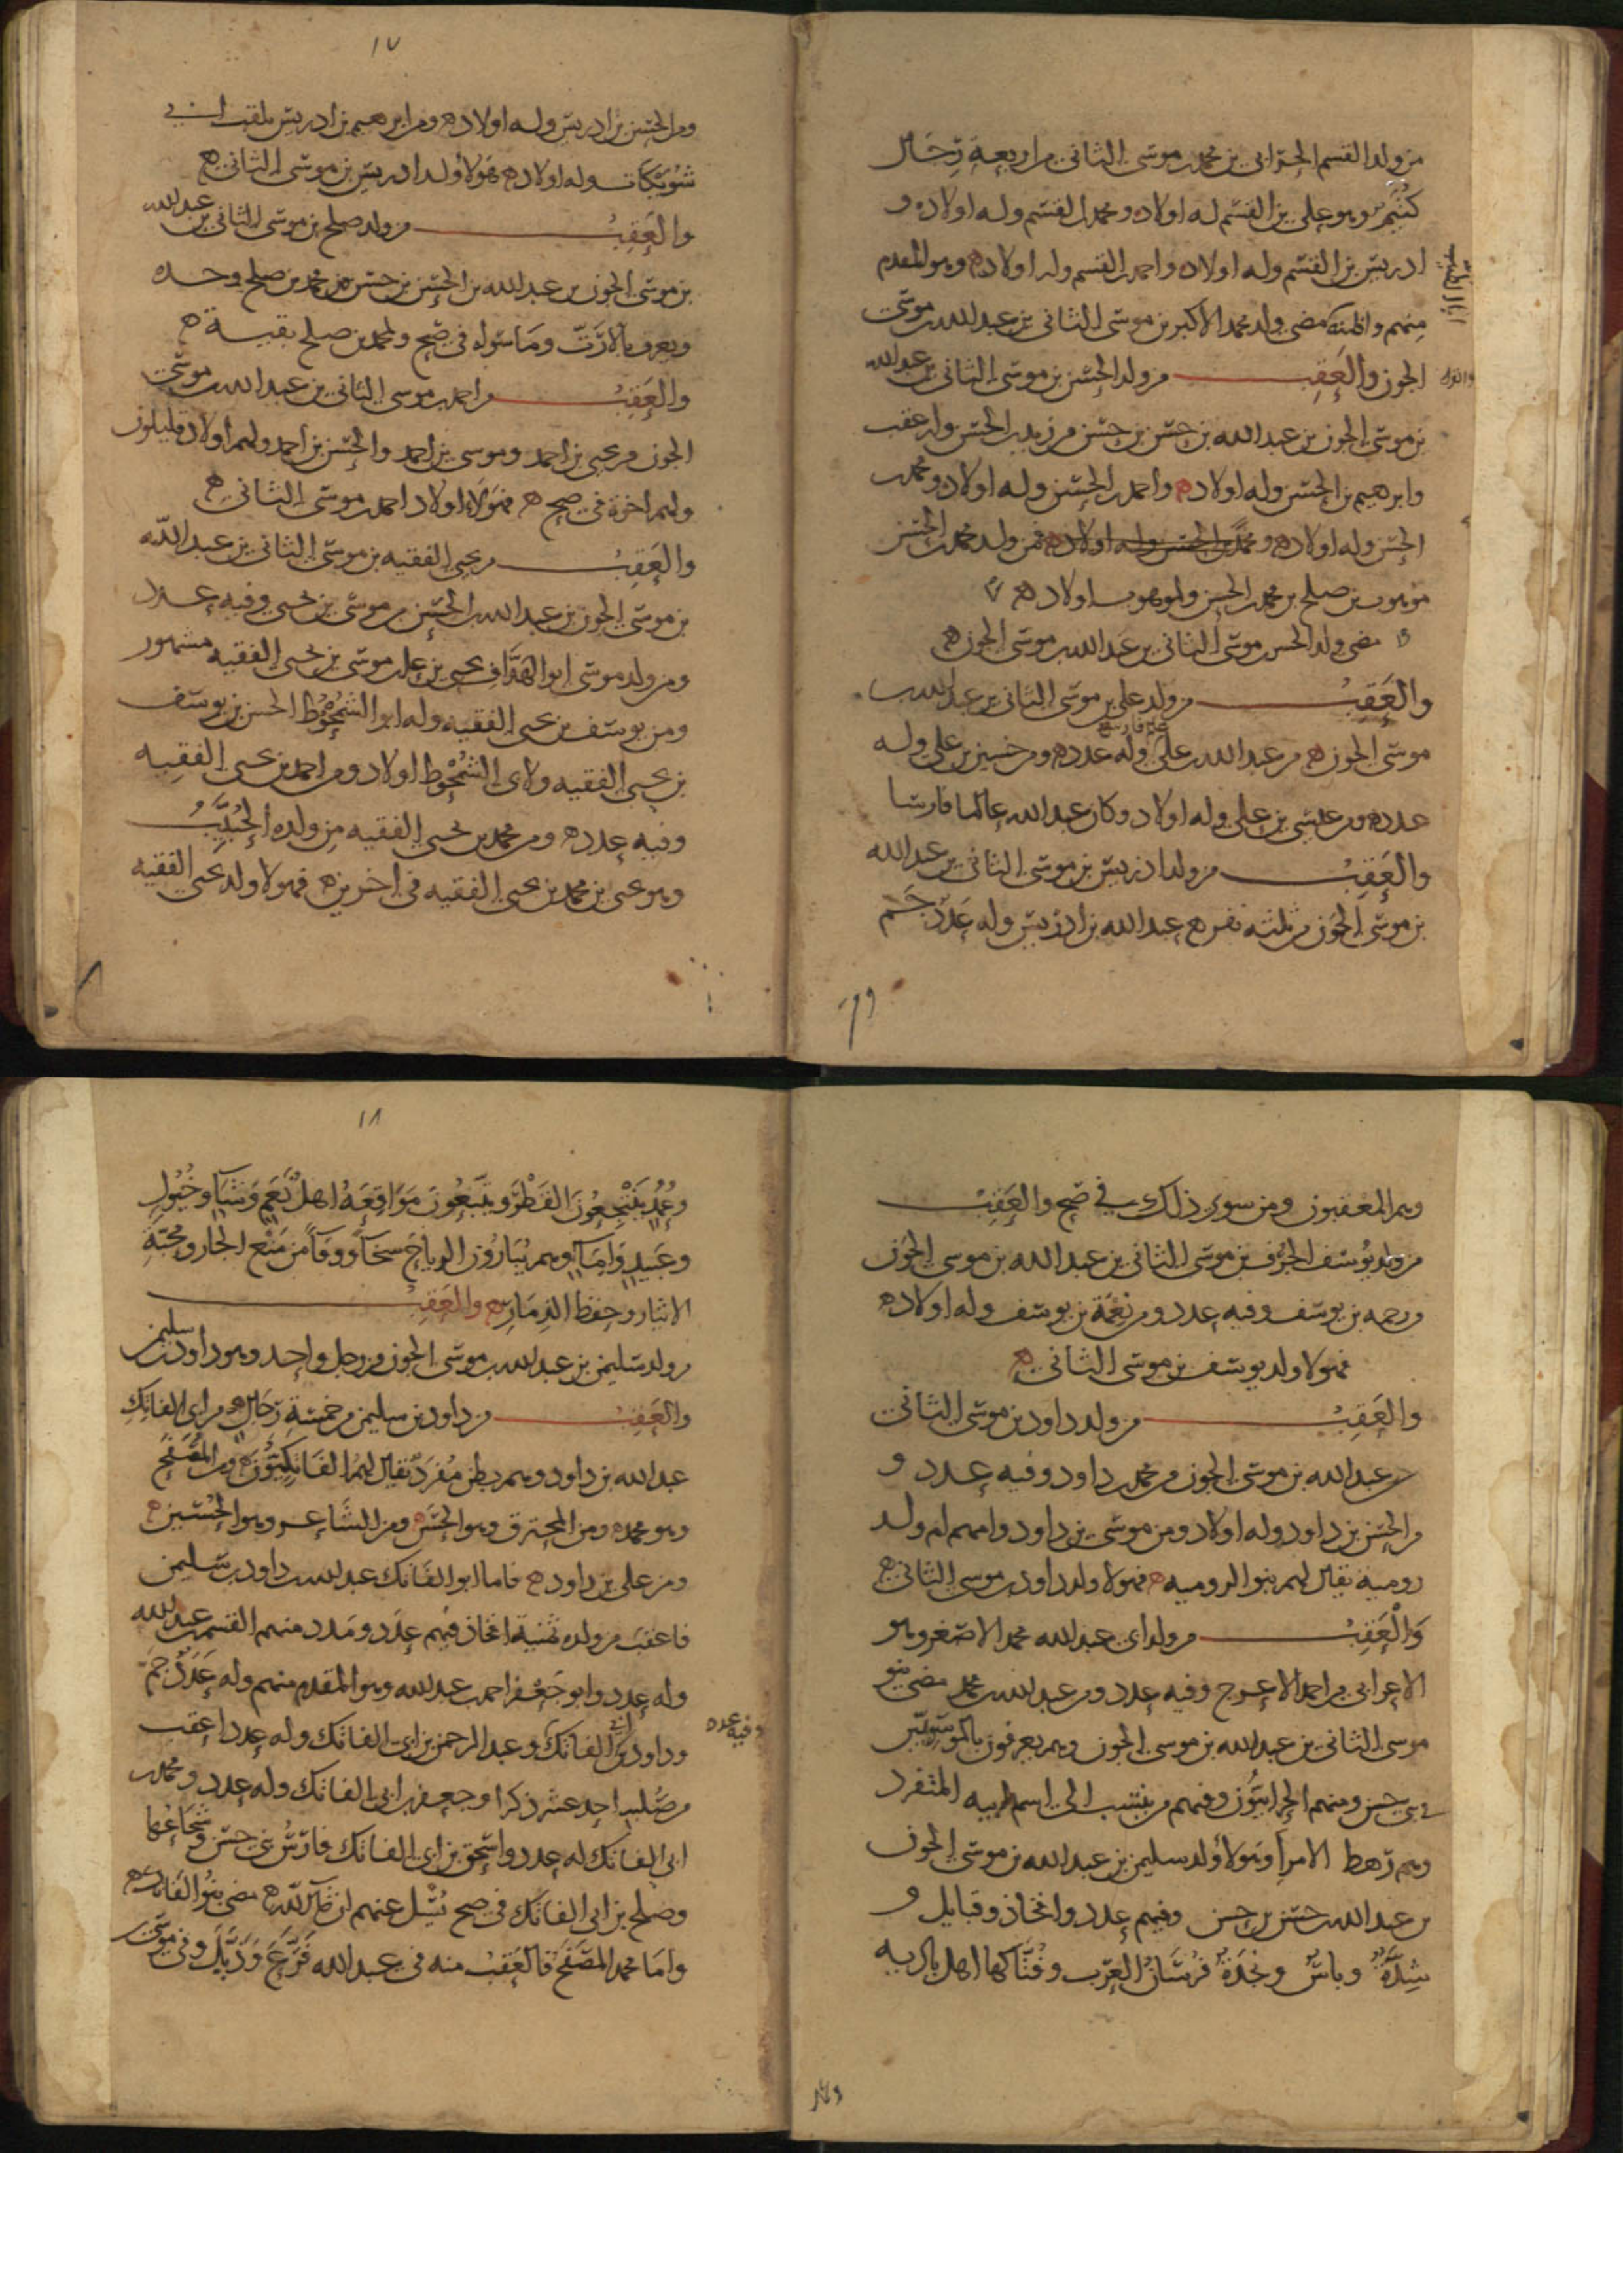 من ولد القسم الحراني بن محمد بن موسى الثاني من اربعة رجال
كتيم وهو علي بن القسم له اولاد ومحمد بن القسم وله اولاد و
ادريس بن القسم وله اولاد واحمد بن القسم وله اولاد وهو المقدم
منهم مضى ولد محمد الاكبر بن موسى الثاني بن عبد الله بن موسى
الجون والعقب من ولد الحسن بن موسى الثاني بن عبد الله
بن موسى الجون بن عبد الله بن حسن بن حسن من زيد بن الحسن وله عقب
وابرهيم بن الحسن وله اولاد واحمد بن الحسن وله اولاد ومحمد بن
الحسن وله اولاد ومحمد بن الحسن وله اولاد فمن ولد محمد بن الحسن
موهوب بن صلح بن محمد بن الحسن ولموهوب اولاد
مضى ولد الحسن بن موسى الثاني بن عبد الله بن موسى الجون
والعقب من ولد علي بن موسى الثاني بن عبد الله بن
موسى الجون من عبد الله بن علي وله عدد ومن حسين بن علي وله
عالم فارس
عدد ومن عيسى بن علي وله اولاد وكان عبد الله عالما فارسا
والعقب من ولد ادريس بن موسى الثاني بن عبد الله
بن موسى الجون من ثلثه نفر عبد الله بن ادريس وله عدد جم
١٧
ومن الحسن بن ادريس وله اولاد ومن ابرهيم بن ادريس يلقب ابي
شويكات وله اولاد هولا ولد ادريس بن موسى الثاني
والعقب من ولد صلح بن موسى الثاني بن عبد الله
بن موسى الجون بن عبد الله بن الحسن بن حسن من محمد بن صلح وحده
ويعرف بالارت وما سواه في صح ولمحمد بن صلح بقية
والعقب من احمد بن موسى الثاني بن عبد الله بن موسى
الجون من يحيى بن احمد وموسى بن احمد والحسن بن احمد ولهم اولاد قليلون
ولهم اخرة في صح فهولاء اولاد احمد بن موسى الثاني
والعقب من يحيى الفقيه بن موسى الثاني بن عبد الله
بن موسى الجون بن عبد الله بن الحسن من موسى بن يحيى وفيه عدد
ومن ولد موسى ابو الهداف يحيى بن علي بن موسى بن يحيى الفقيه مشهور
ومن يوسف بن يحيى الفقيه وله ابو الشمحوط الحسن بن يوسف
بن يحيى الفقيه ولابي الشمحوط اولاد ومن احمد بن يحيى الفقيه
وفيه عدد ومن محمد بن يحيى الفقيه من ولده الحبيب
وهو يحيى بن محمد بن يحيى الفقيه في اخرين فهولا ولد يحيى الفقيه
وهم المعقبون ومن سوى ذلك في صح والعقب
من ولد يوسف الحرف بن موسى الثاني بن عبد الله بن موسى الجون
من رحمه بن يوسف وفيه عدد ومن نعمة بن يوسف وله اولاد
فهولا ولد يوسف بن موسى الثاني
والعقب من ولد داود بن موسى الثاني
بن عبد الله بن موسى الجون من محمد بن داود وفيه عدد و
من الحسن بن داود وله اولاد ومن موسى بن داود وامهم ام ولد
رومية يقال لهم بنو الروميه فهولا ولد داود بن موسى الثاني
والعقب من ولد ابي عبد الله محمد الاصغر وهو
الاعرابي من احمد الاعرج وفيه عدد ومن عبد الله بن محمد مضى بنو
موسى الثاني بن عبد الله بن موسى الجون وهم يعرفون بالموسويين
في بني حسن ومنهم الحرابيون وفيهم من ينتسب الى اسم ابيه المتفرد
وهم رهط الامرا وهولا ولد سليمن بن عبد الله بن موسى الجون
بن عبد الله بن حسن بن حسن وفيهم عدد وافخاذ وقبايل و
شدة وباس ونجدة فرسان العرب وفتاكها اهل بادية
١٨
وعمد ينتجعون القطر ويتبعون مواقعه اهل نعم وشيا وخيول
وعبيد واما وهم يبارون الرياح سخا ووفا من منع الجار ومحبة
الايثار وحفظ الذمار والعقب
من ولد سليمن بن عبد الله بن موسى الجون من رجل واحد وهو داود بن سليمن
والعقب من داود بن سليمن من خمسة رجال من ابي الفاتك
عبد الله بن داود وهم بطن مفرد يقال لهم الفاتكيون ومن المصفح
وهو محمد ومن المحترق وهو الحسن ومن الشاعر وهو الحسين
ومن علي بن داود فاما ابو الفاتك عبد الله بن داود بن سليمن
فاعقب من ولده ثمنية افخاذ فيهم عدد ومدد منهم القسم بن عبد الله
وله عدد وابو جعفر احمد بن عبد الله وهو المقدم منهم وله عدد جم
وداود بن ابي الفاتك وعبد الرحمن بن ابي الفاتك وله عدد اعقب
وفيه عدد
من صلبه احد عشر ذكرا وجعفر بن ابي الفاتك وله عدد ومحمد بن
ابي الفاتك له عدد واسحق بن ابي الفاتك فارس بني حسن وشجاعها
وصلح بن ابي الفاتك في صح يسل عنهم ان شا الله مضى بنو الفاتك
واما محمد المصفح فالعقب منه في عبد الله